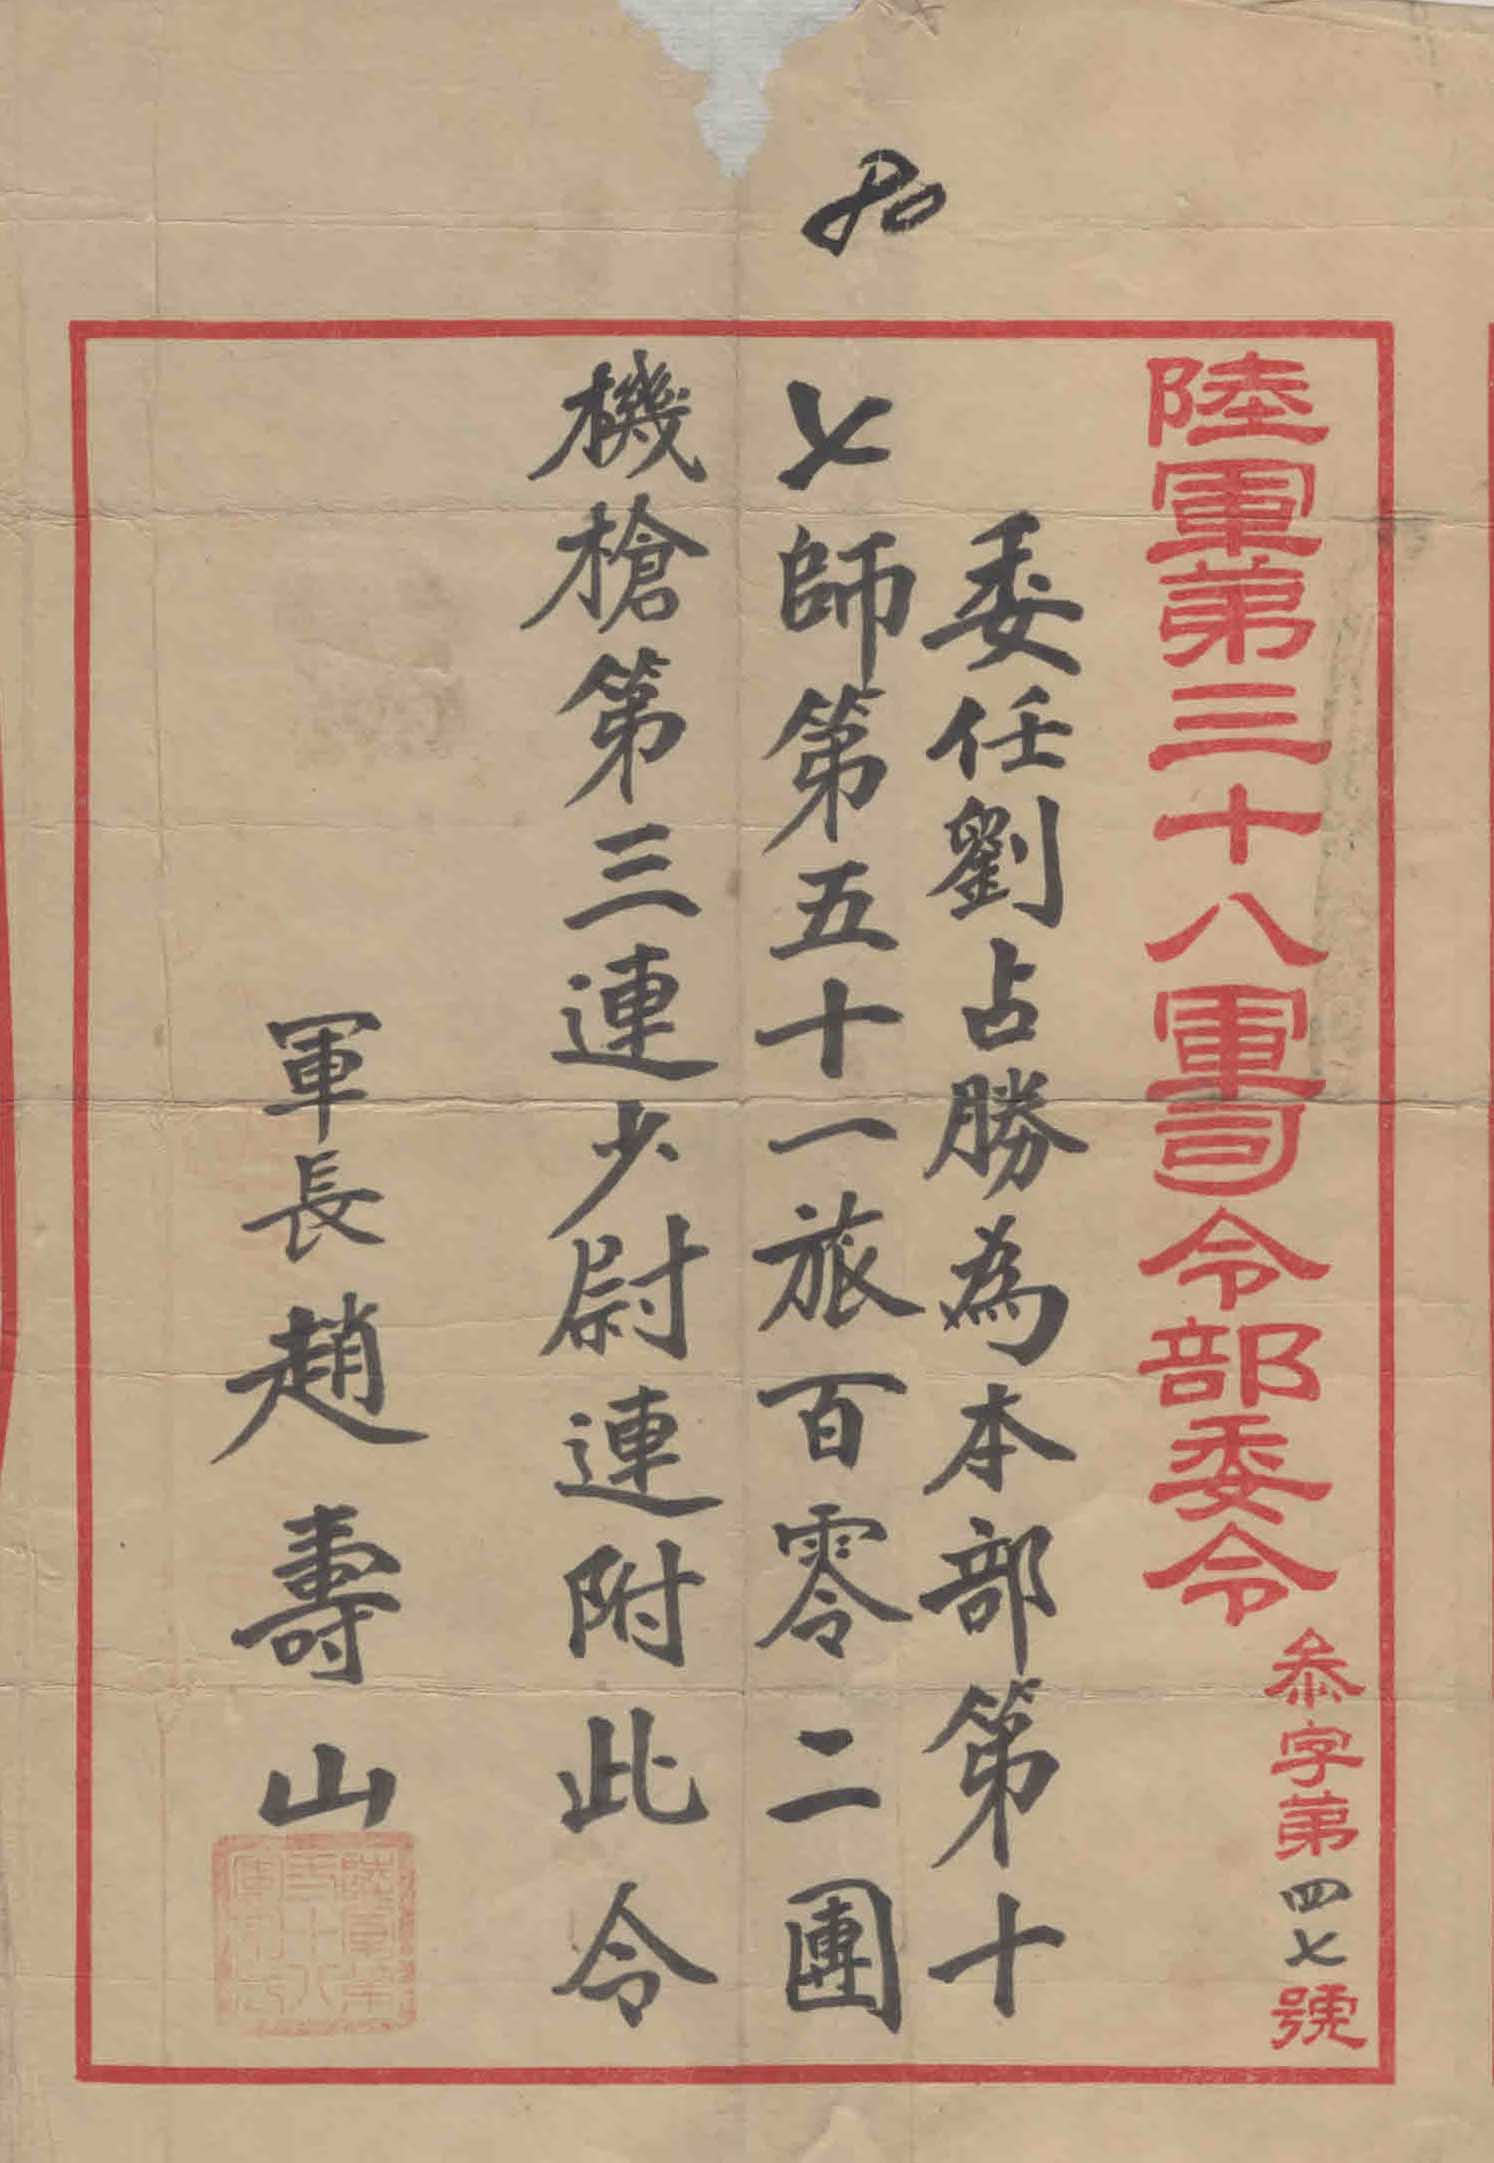 陸軍第三十八軍司令部委令
叅字第四七號
委任劉占勝為本部第十
七師第五十一旅百零二團
機槍第三連少尉連附此令
軍長趙壽山